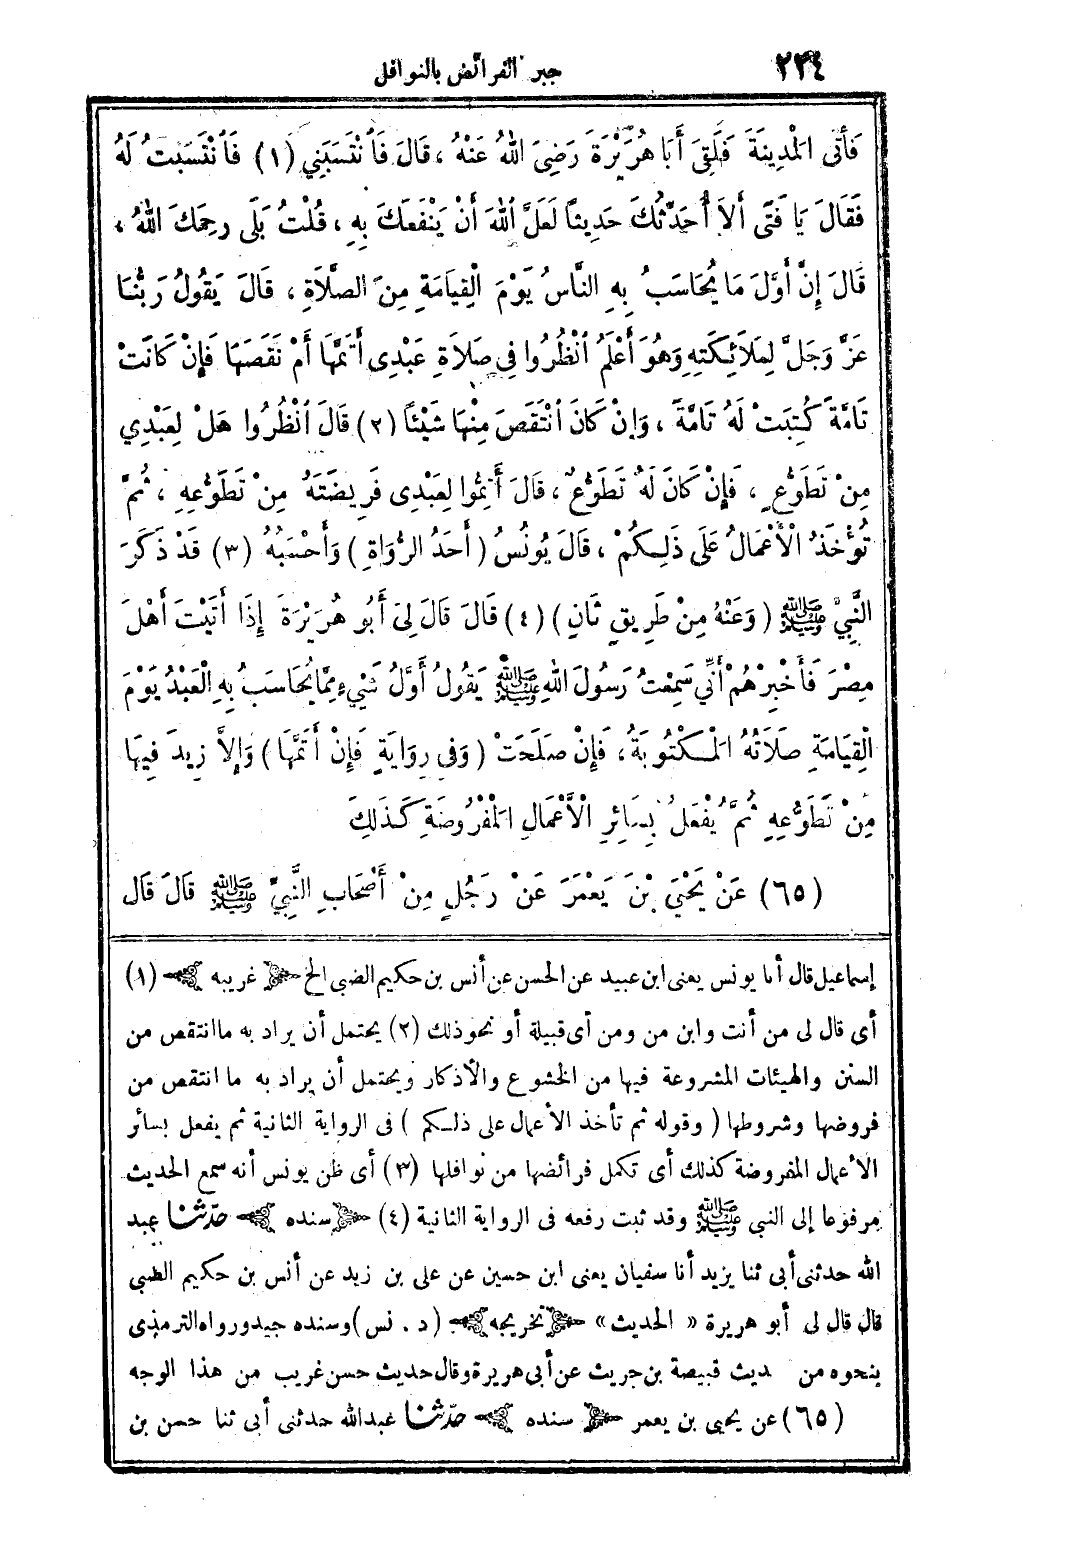 ٢٣٤
جبر الفرائض بالنوافل
فَأَتَى الْمَدِينَةَ فَلَقِيَ أَبَا هُرَيْرَةَ رَضِيَ اللهُ عَنْهُ ، قَالَ فَانْتَسَبَنِي (١) فَانْتَسَبْتُ لَهُ
فَقَالَ يَا فَتَى أَلاَ أُحَدِّثُكَ حَدِيثاً لَعَلَّ اللهَ أَنْ يَنْفَعَكَ بِهِ ، قُلْتُ بَلَى رَحِمَكَ اللهُ ،
قَالَ إِنَّ أَوَّلَ مَا يُحَاسَبُ بِهِ النَّاسُ يَوْمَ الْقِيَامَةِ مِنَ الصَّلَاةِ ، قَالَ يَقُولُ رَبُّنَا
عَزَّ وَجَلَّ لِمَلَائِكَتِهِ وَهُوَ أَعْلَمُ انْظُرُوا فِي صَلَاةِ عَبْدِى أَتَمَّهَا أَمْ نَقَصَهَا فَإِنْ كَانَتْ
تَامَّةً كُتِبَتْ لَهُ تَامَّةً ، وَإِنْ كَانَ انْتَقَصَ مِنْهَا شَيْئاً (٢) قَالَ انْظُرُوا هَلْ لِعَبْدِي
مِنْ تَطَوُّعٍ ، فَإِنْ كَانَ لَهُ تَطَوُّعٌ ، قَالَ أَتِمُّوا لِعَبْدِى فَرِيضَتَهُ مِنْ تَطَوُّعِهِ ، ثُمَّ
تُؤْخَذُ الْأَعْمَالُ عَلَى ذَلِكُمْ ، قَالَ يُونُسُ ( أَحَدُ الرُّوَاةِ ) وَأَحْسَبُهُ (٣) قَدْ ذَكَرَ
النَّبِيَّ ﷺ ( وَعَنْهُ مِنْ طَرِيقٍ ثَانٍ ) (٤) قَالَ قَالَ لِيَ أَبُو هُرَيْرَةَ إِذَا أَتَيْتَ أَهْلَ
مِصْرَ فَأَخْبِرْهُمْ أَنِّي سَمِعْتُ رَسُولَ اللهِ ﷺ يَقُولُ أَوَّلُ شَيْءٍ مِمَّا يُحَاسَبُ بِهِ الْعَبْدُ يَوْمَ
الْقِيَامَةِ صَلَاتُهُ الْمَكْتُوبَةُ ، فَإِنْ صَلَحَتْ ( وَفِي رِوَايَةٍ فَإِنْ أَتَمَّهَا ) وَإِلاَّ زِيدَ فِيهَا
مِنْ تَطَوُّعِهِ ثُمَّ يُفْعَلُ بِسَائِرِ الْأَعْمَالِ الْمَفْرُوضَةِ كَذَلِكَ
(٦٥) عَنْ يَحْيَى بْنِ يَعْمَرَ عَنْ رَجُلٍ مِنْ أَصْحَابِ النَّبِيِّ ﷺ قَالَ قَالَ
إسماعيل قال أنا يونس يعنى ابن عبيد عن الحسن عن أنس بن حكيم الضبى الخ غريبه (١)
أى قال لى من أنت وابن من ومن أى قبيلة أو نحو ذلك (٢) يحتمل أن يراد به ما انتقص من
السنن والهيئات المشروعة فيها من الخشوع والأذكار ويحتمل أن يراد به ما انتقص من
فروضها وشروطها ( وقوله ثم تأخذ الأعمال على ذلكم ) فى الرواية الثانية ثم يفعل بسائر
الأعمال المفروضة كذلك أى تكمل فرائضها من نوافلها (٣) أى ظن يونس أنه سمع الحديث
مرفوعا إلى النبي ﷺ وقد ثبت رفعه فى الرواية الثانية (٤) سنده حدّثنا عبد
الله حدثنى أبى ثنا يزيد أنا سفيان يعنى ابن حسين عن على بن زيد عن أنس بن حكيم الضبى
قال قال لى أبو هريرة « الحديث » تخريجه ( د . نس ) وسنده جيد ورواه الترمذى
بنحوه من حديث قبيصة بن حريث عن أبى هريرة وقال حديث حسن غريب من هذا الوجه
(٦٥) عن يحيى بن يعمر سنده حدّثنا عبدالله حدثنى أبى ثنا حسن بن